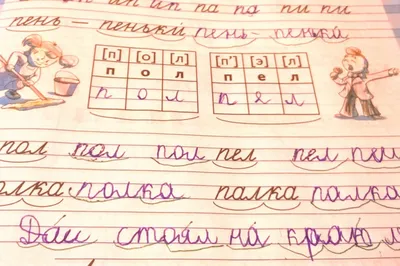 ип ип па па пи пи
пень — пеньки пень - пеньки
[п] [о] [л] [п'] [э] [л]
п о л п е л
п о л п е л
пол пол пол пел пел
полка полка палка палка
стоял на